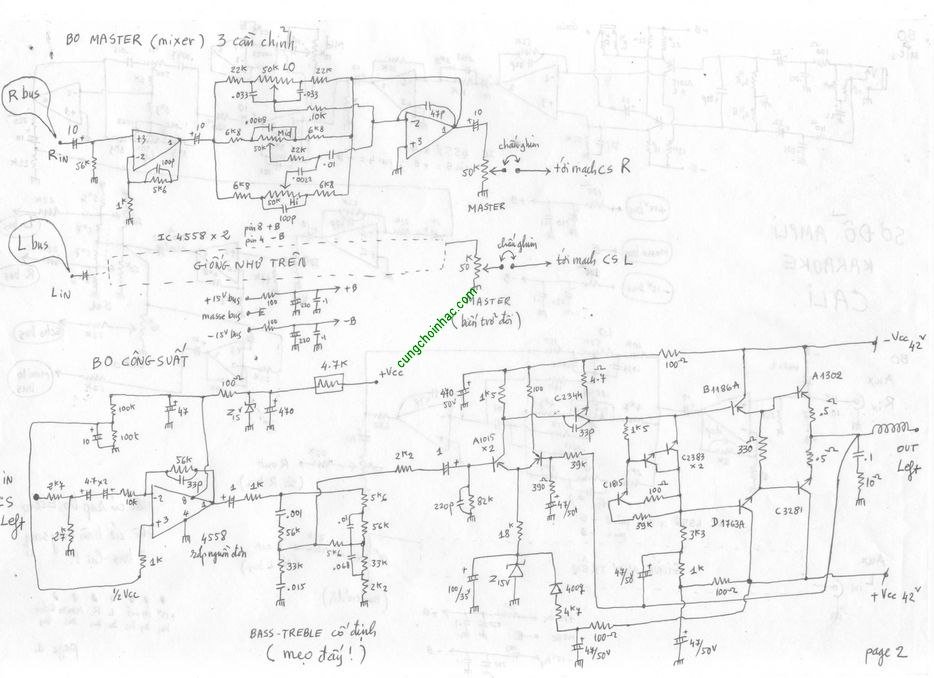 BO MASTER (mixer) 3 cần chỉnh
R bus
RIN
10
56K
+3
-2
1
100p
5K6
1K
10
22K
50K LO
22K
.033
.033
10K
.0068
6K8
Mid
6K8
50K
22K
.01
.0022
6K8
50K
Hi
6K8
100p
-2
+3
47p
1
10
50K
MASTER
chấu ghim
tới mạch CS R
IC 4558 x 2
pin 8 +B
pin 4 -B
L bus
LIN
GIỐNG NHƯ TRÊN
50K
chấu ghim
tới mạch CS L
MASTER
(biến trở đôi)
+15V bus
100
220
.1
+B
masse bus
-15V bus
100
220
.1
-B
cungchoinhac.com
BO CÔNG SUẤT
100K
10
100K
47
100Ω
Z15V
470
4.7K
+Vcc
IN
CS
Left
2K7
27K
4.7x2
10K
56K
33p
-2
+3
8
1
4
4558
ráp nguồn đơn
1K
1/2Vcc
1
1K
.001
56K
33K
.015
5K6
.01
5K6
56K
.068
33K
2K2
BASS-TREBLE cố định
(mẹo đấy!)
2K2
1
220p
82K
470
50V
1K5
100
A1015
x2
C2344
4.7
33p
39K
390
47/50V
18K
100/35V
Z15V
4007
4K7
100Ω
47/50V
100Ω
B1186A
A1302
-Vcc 42V
1K5
C2383
x2
C1815
100Ω
39K
330Ω
.5Ω
.5Ω
D1763A
C3281
3K3
47/50
1K
100Ω
47/50V
.1
10Ω
OUT
Left
+Vcc 42V
page 2